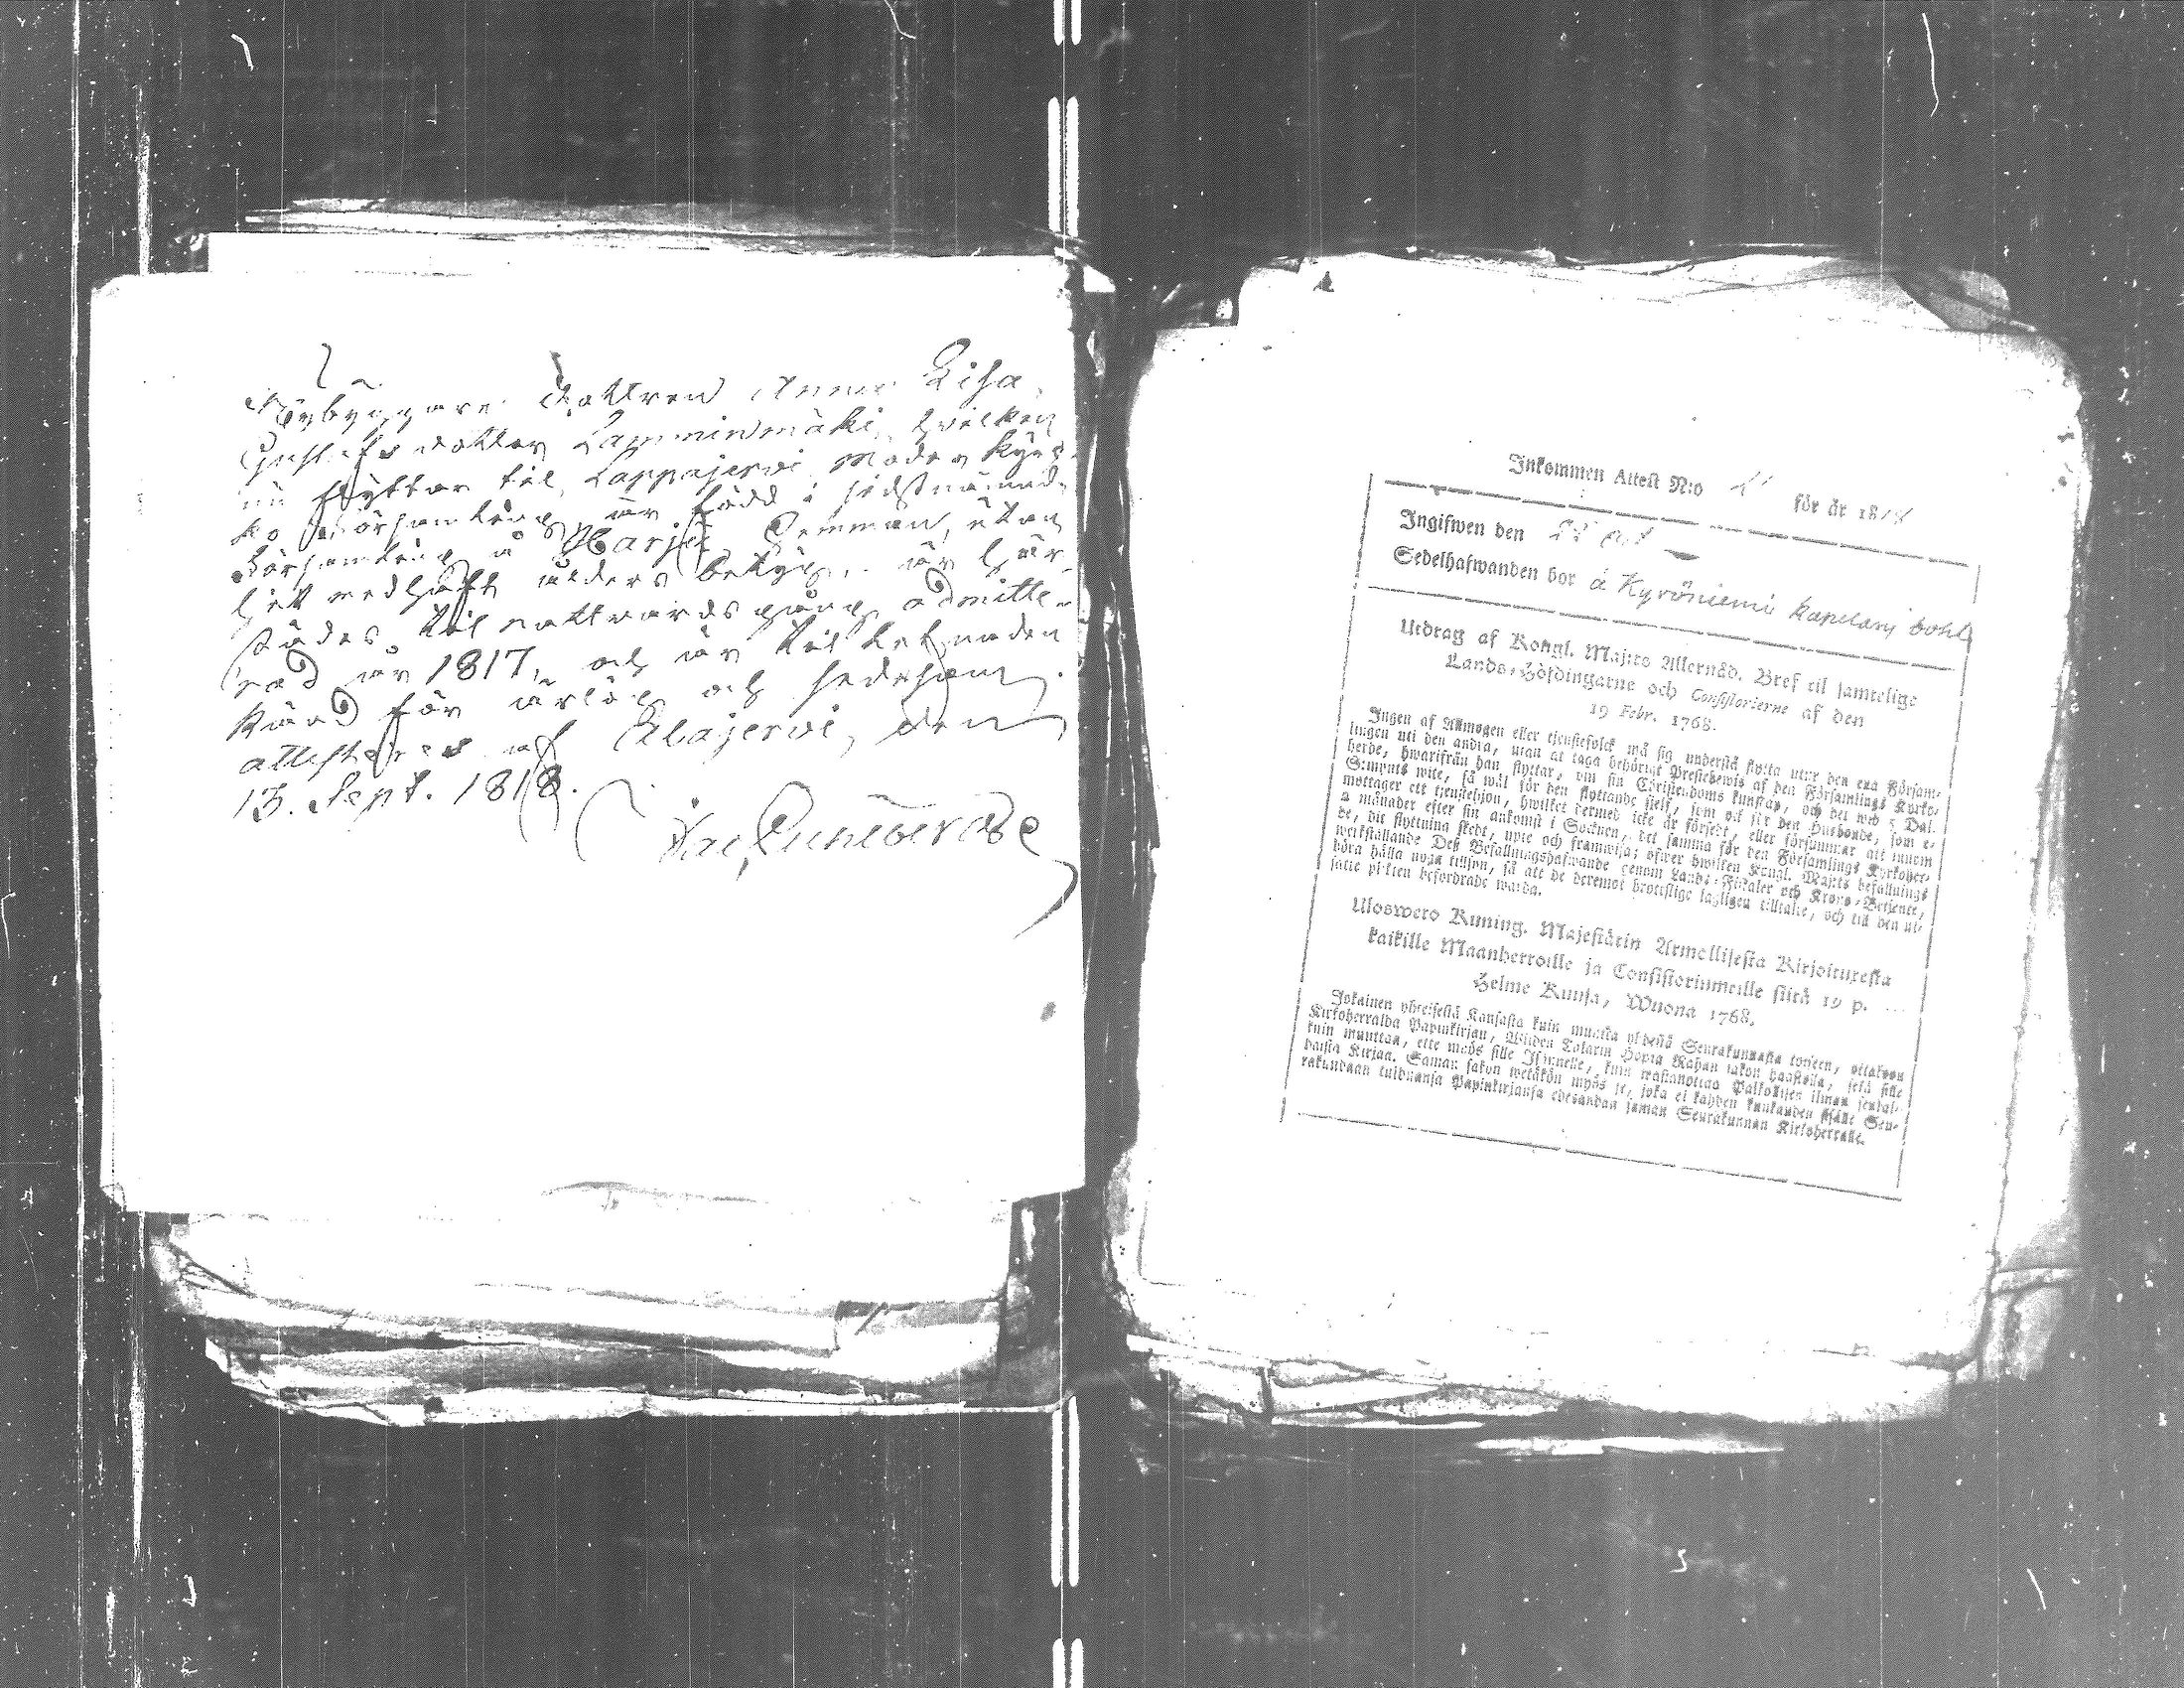 Nybyggare dottren Anna Lisa
Gustafs dotter Lamminmäki, hvilken
nu flyttar til Lappajervi Moder kyrc-
ko Församling, är född i sidstnämnd
Församling å Harju Hemman, utan
hit medhaft ålders betyg, är här-
städes til nattvards gång admitte-
rad år 1817, och är til lefnaden
känd för ärlig och sedesam
attesteras af Alajervi, den
13. Sept. 1818.
Inkommen Attest N:o för år 1818
Ingifwen den 22 oct
Sedelhafwanden bor å Kyröniemi kapelans bohl
Utdrag af Kongl. Maj:ts Allernåd. Bref til samtelige
Lands-Höfdingarne och Consistorierne af den
19 Febr. 1768.
Ingen af Allmogen eller tjenstefolck må sig understå flytta utur den ena Försam-
lingen uti den andra, utan at taga behörigt Prestebewis af den Församlings Kyrko-
herde, hwarifrån han flyttar, om sin Christendoms kunskap, och det wid 5 Dal.
S:mynts wite, så wäl för den flyttande sjelf, som ock för den Husbonde, som e-
mottager ett tjenstehjon, hwilket dermed icke är försedt, eller försummar att innom
2 månader efter sin ankomst i Socknen, det samma för den Församlings Kyrkoher-
de, dit flyttning skedt, upte och framwisa; öfwer hwilken Kongl. Maj:ts befallnings
werkställande Deß Befallningshafwande genom Lands-Fiskaler och Krono-Betjente,
böra hålla noga tillsyn, så att de deremot brottslige lagligen tilltalte, och till den ut-
satte plikten befordrade warda.
Uloswero Kuning. Majestätin Armollisesta Kirjoituxesta
kaikille Maanherroille ja Consistoriumeille siitä 19 p.
Helme Kuusa, Wuona 1768.
Jokainen yhteisestä Kansasta kuin muutta yhdestä Seurakunnasta toiseen, ottakoon
Kirkoherralda Papinkirjan, Wijden Talarin Hopia Rahan sakon haastolla, sekä sille
kuin muuttaa, ette myös sille Isännelle, kuin wastanottaa Palkollisen ilman sencal-
daista Kirjaa. Saman sakon wetäkön myös se, joka ei kahden kuukauden sisälle Seu-
rakundaan tulduansa Papinkirjansa edesandan saman Seurakunnan Kirkoherralle.